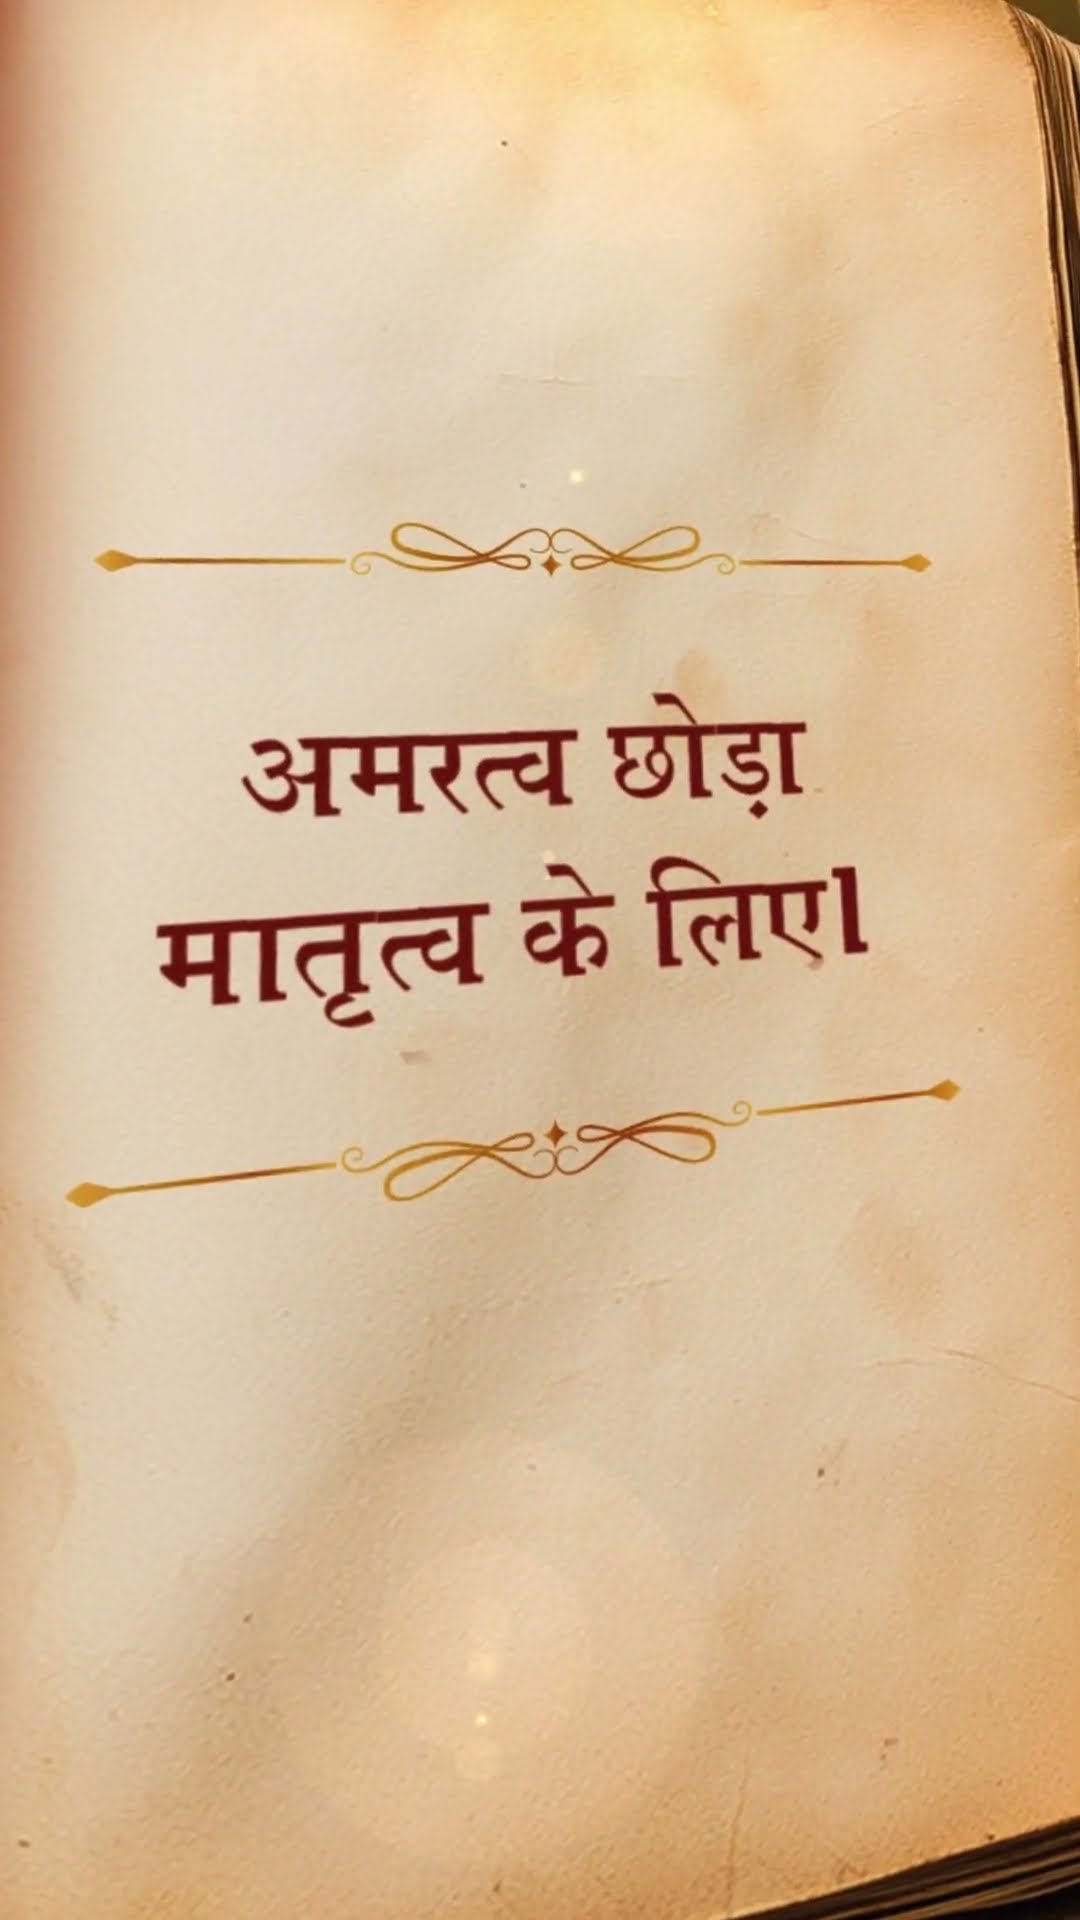 अमरत्व छोड़ा
मातृत्व के लिए।